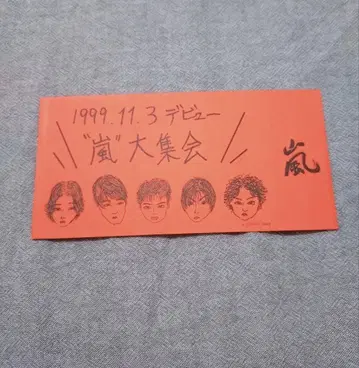 1999.11.3 デビュー
"嵐" 大集会
嵐